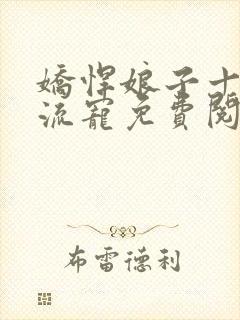 嬌悍娘子十
流寵免費閱
布雷德利